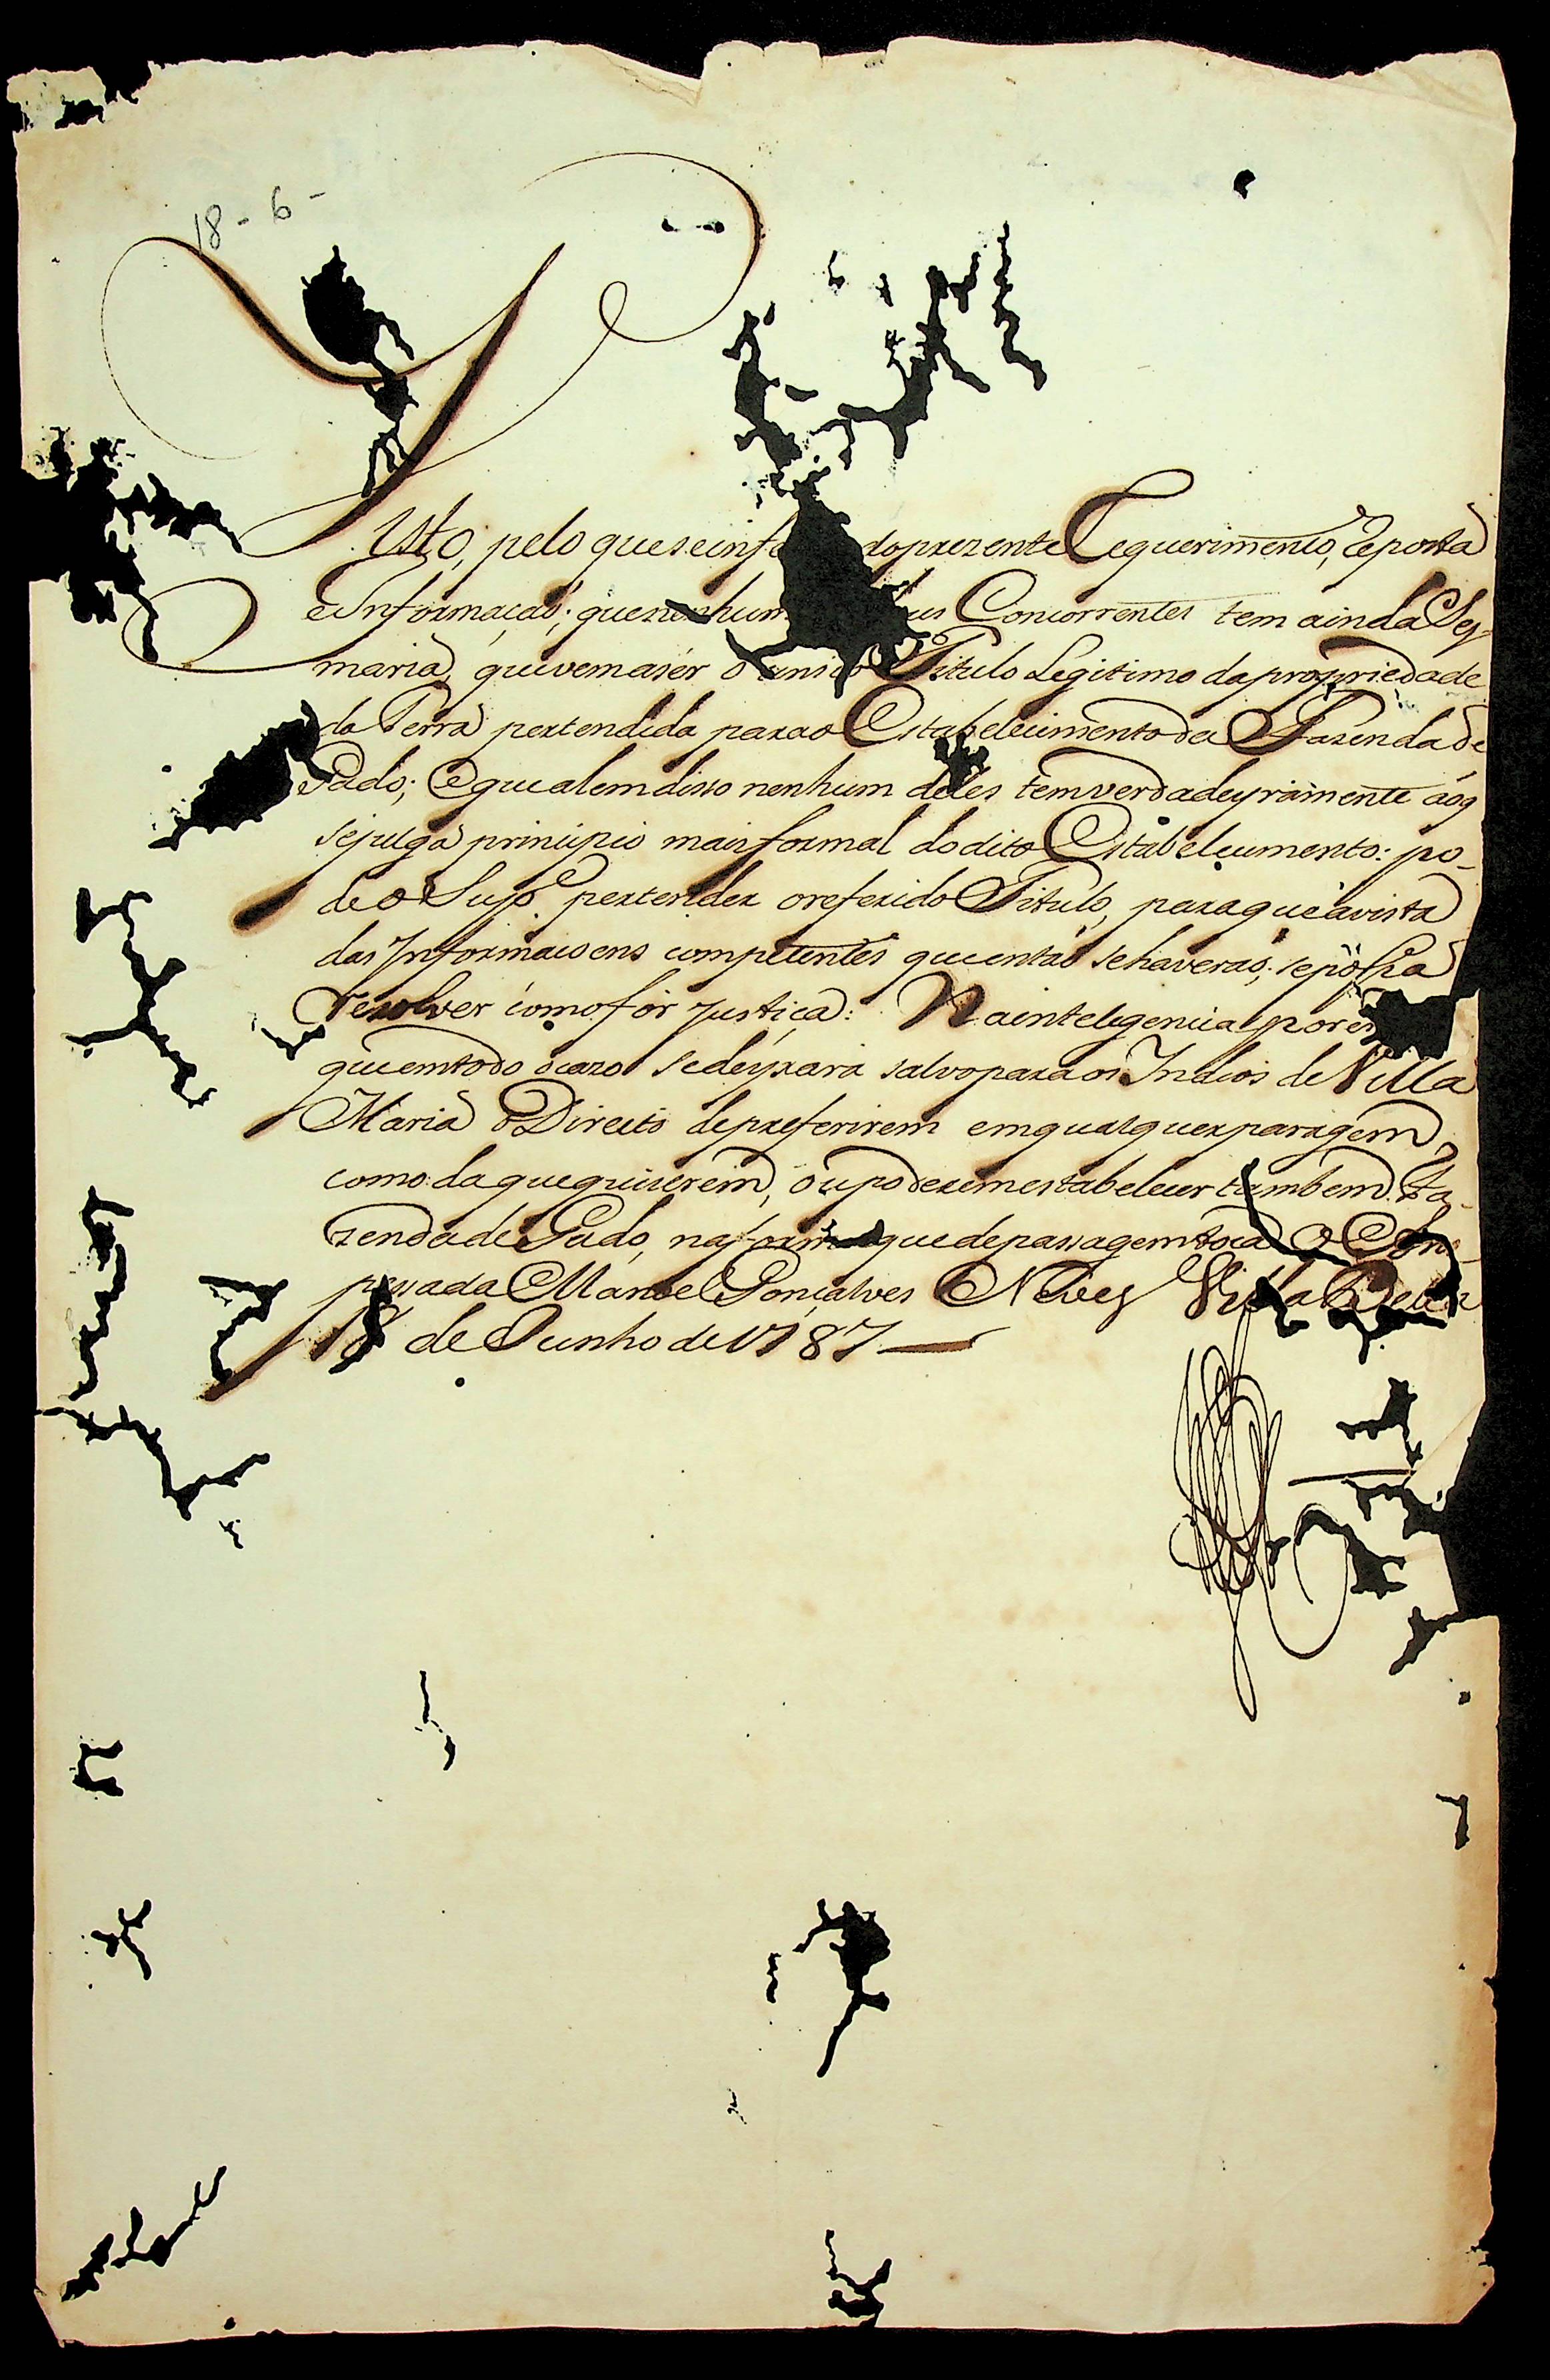 18-6-
VISto, pelo que se infe do prezente Requerimento, Reposta
e Informaçaõ; que nenhum us Concorrentes tem ainda Ses
maria, que vem a sér o unico Titulo Legitimo da propriedade
da Terra pertendida para o Estabelecimento da Fazenda de
Gado; e que alem disso nenhum deles tem verdadeyramente aó q
se julga principio mais formal do dito Estabelecimento: po-
de o Supe pertender o referido Titulo, para que á vista
das Informacoens competentes que entaõ se haveraõ, se possa
rezolver como fór Justiça: Na intelegencia porem
que em todo o cazo se deyxará salvo para os Indios de Villa
Maria o Direito de preferirem em qualquer paragem
comoda que quiserem, ou poderem estabelecer tambem Fa-
zenda de Gado, na forma que de passagem toca o
Manoel Gonçalves Neves Villa Bela
18 de Junho de 1787